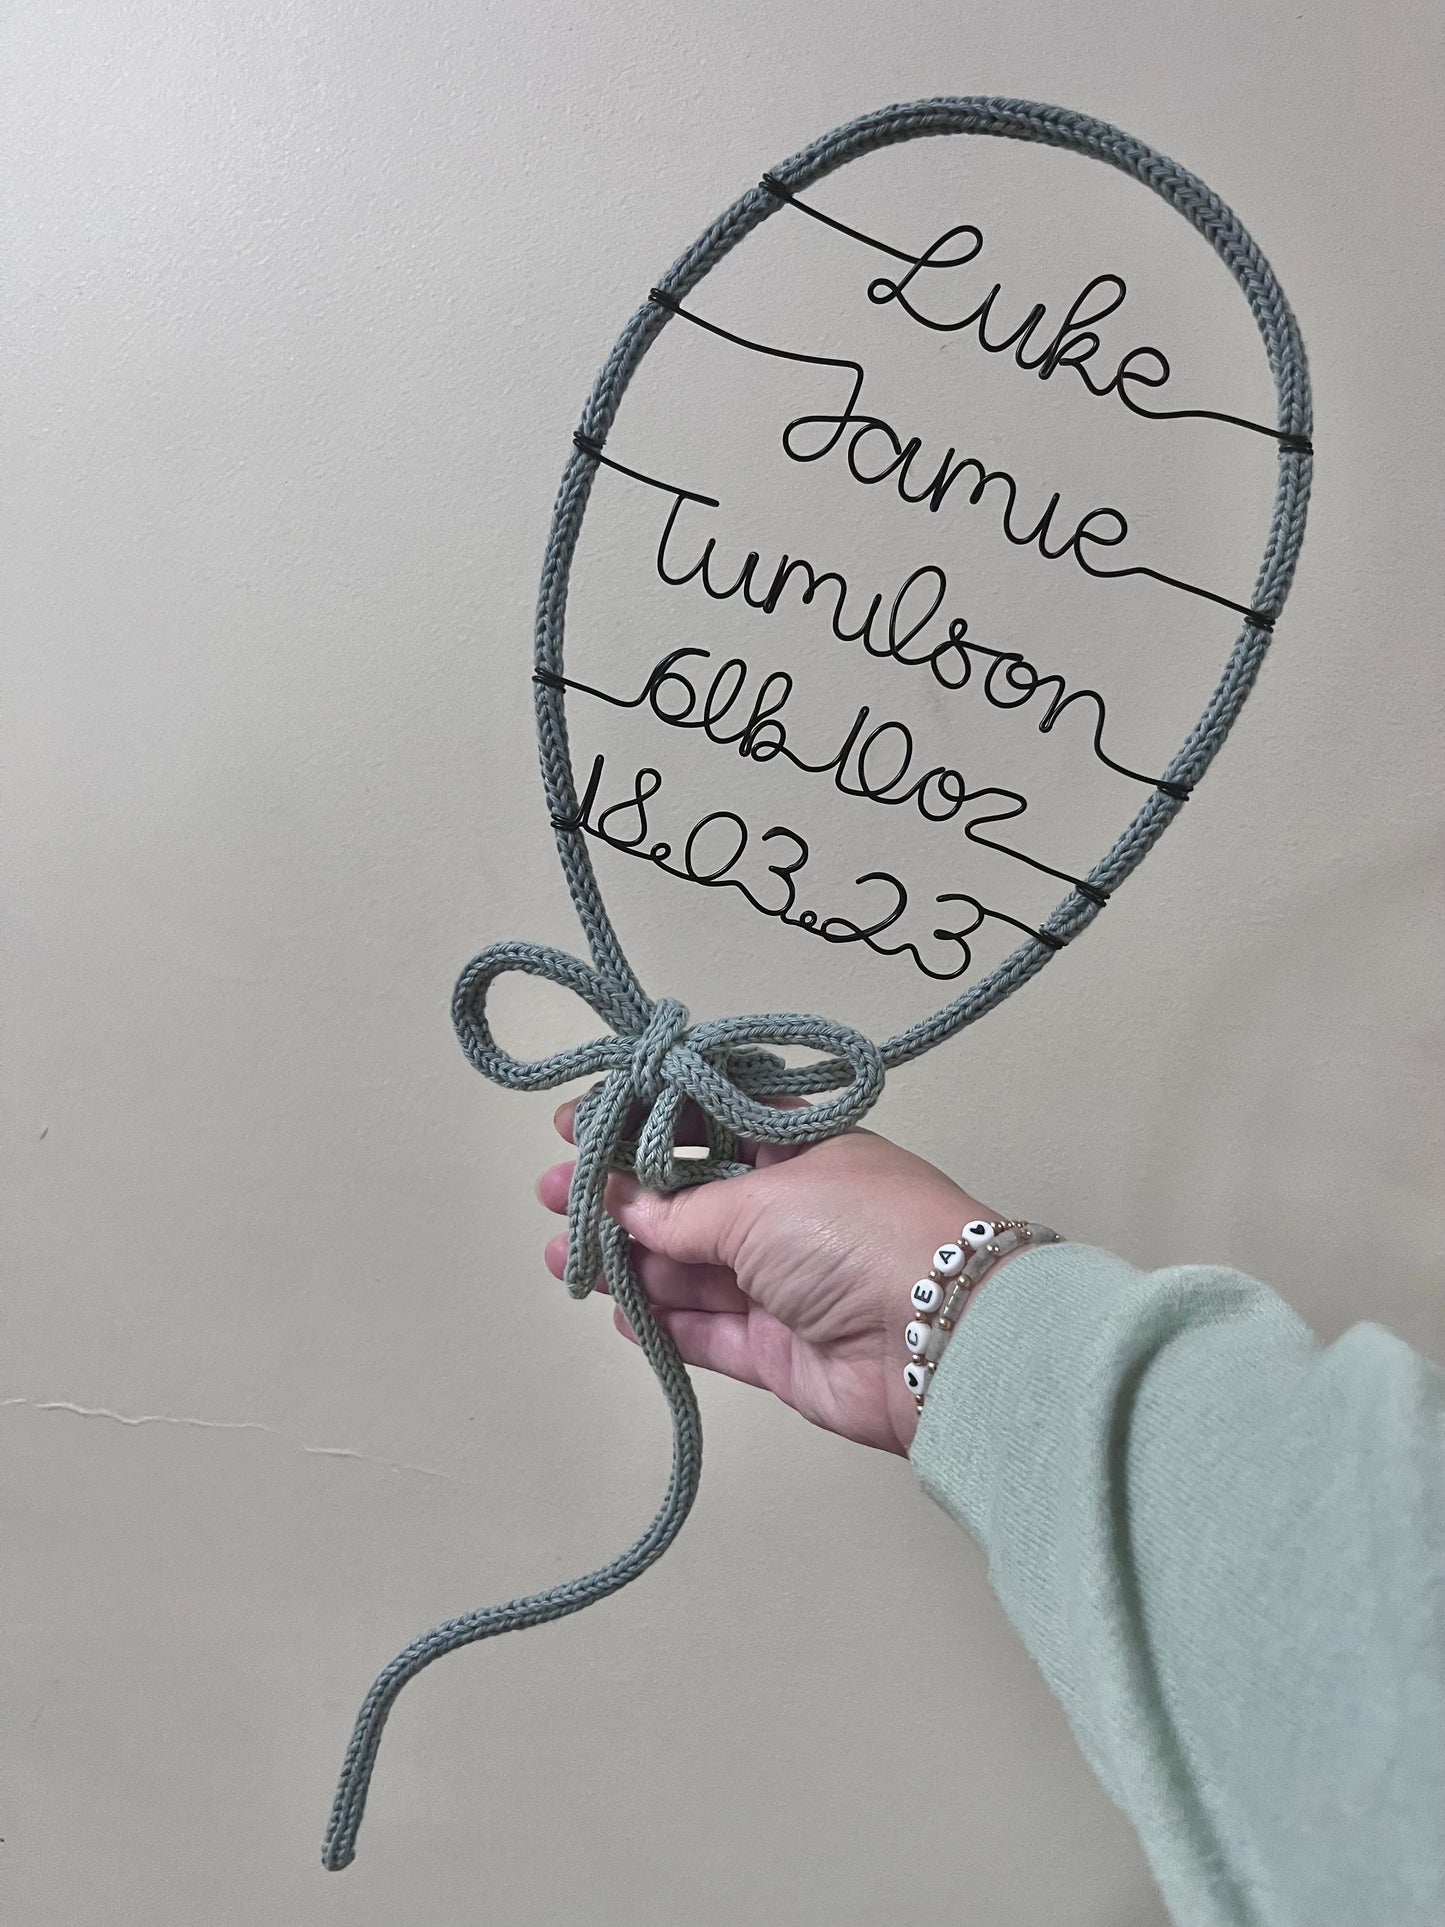 Luke
Jamie
Tumilson
6lb 10oz
18.03.23
CEA